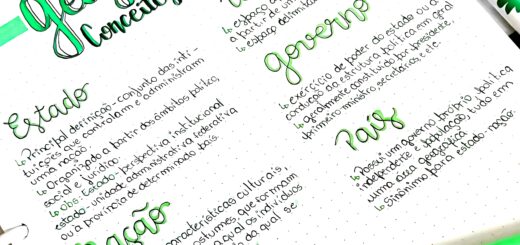 Conceito
Estado
↳ Principal definição - conjunto das insti-
tuições que controlam e administram
uma nação.
↳ Organizado a partir dos âmbitos político,
social e jurídico.
↳ Obs: Estado - perspectiva institucional
estado - unidade administrativa federativa
ou a província de determinado país.
ação
características culturais,
costumes, que formam
a qual os indivíduos
da qual se
espaço
a partir de um
↳ espaço delimita
governo
↳ exercício de poder do estado ou a
condução da estrutura política em geral
↳ geralmente constituído por presidente,
primeiro ministro, secretários e etc.
País
↳ Possui um governo próprio, política
independente e população, tudo em
uma área geográfica.
↳ Sinônimo para estado-nação.